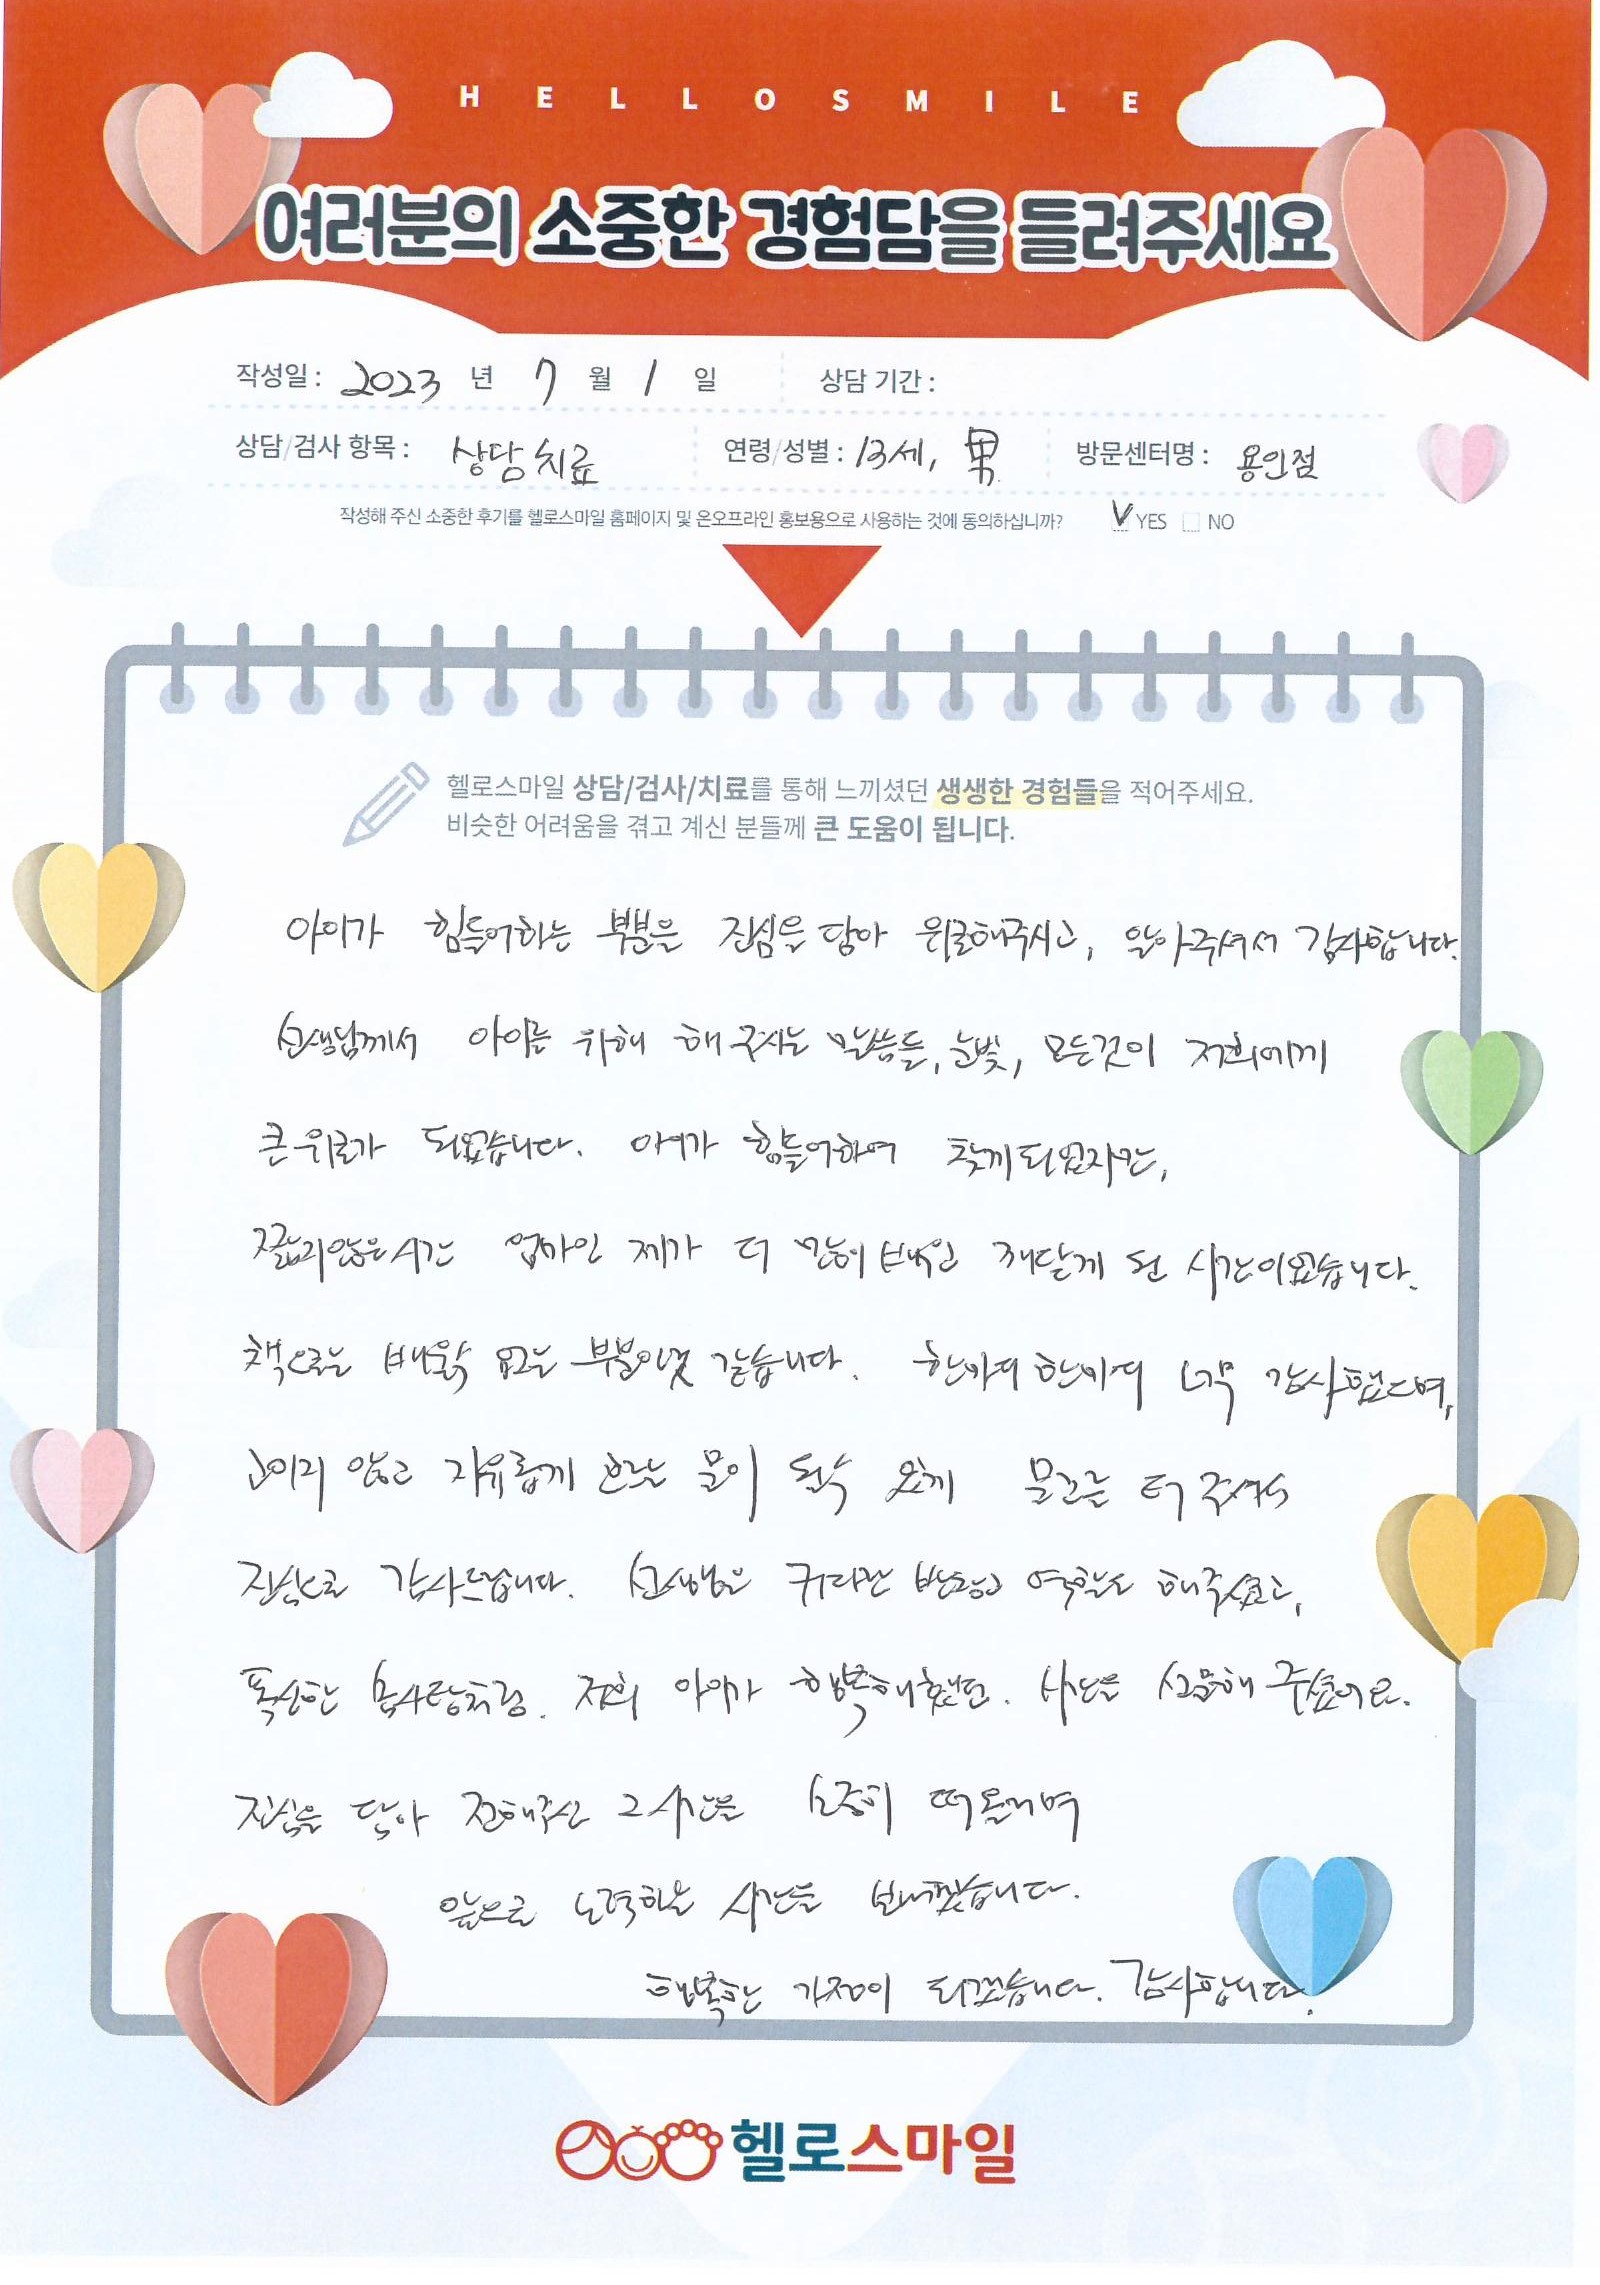 HELLOSMILE
여러분의 소중한 경험담을 들려주세요
작성일 : 2023 년 7 월 1 일 상담 기간 :
상담/검사 항목 : 상담치료 연령/성별 : 13세, 男 방문센터명 : 용인점
작성해 주신 소중한 후기를 헬로스마일 홈페이지 및 온오프라인 홍보용으로 사용하는 것에 동의하십니까? ✓YES □ NO
헬로스마일 상담/검사/치료를 통해 느끼셨던 생생한 경험들을 적어주세요.
비슷한 어려움을 겪고 계신 분들께 큰 도움이 됩니다.
아이가 힘들어하는 부분을 진심을 담아 위로해주시고, 알아주셔서 감사합니다.
선생님께서 아이를 위해 해 주시는 말씀들, 눈빛, 모든것이 저희에게
큰 위로가 되었습니다. 아이가 힘들어하여 찾게되었지만,
짧지않은시간 엄마인 제가 더 많이 배우고 깨닫게 된 시간이었습니다.
책으로는 배울수 없는 부분이었던것 같습니다. 한마디 한마디 너무 감사했으며,
고이지 않고 자유롭게 흐르는 물이 될수 있게 물길을 터 주셔서
진심으로 감사드립니다. 선생님은 커다란 반창고 역할도 해주셨고,
폭신한 솜사탕처럼. 저희 아이가 행복해했던. 시간을 선물해 주셨어요.
진심을 담아 전해주신 그 시간을 소중히 떠올리며
앞으로 노력하는 시간을 보내겠습니다.
행복한 가정이 되겠습니다. 감사합니다.
헬로스마일